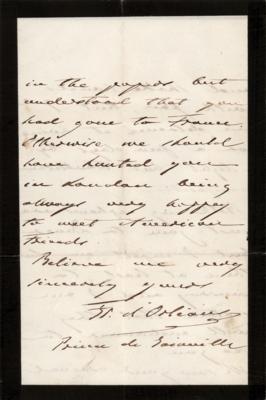 in the papers but
understood that you
had gone to France.
Otherwise we should
have hunted you
in London being
always very happy
to meet American
friends
Believe me very
sincerely yours
Fr. d'Orléans
Prince de Joinville